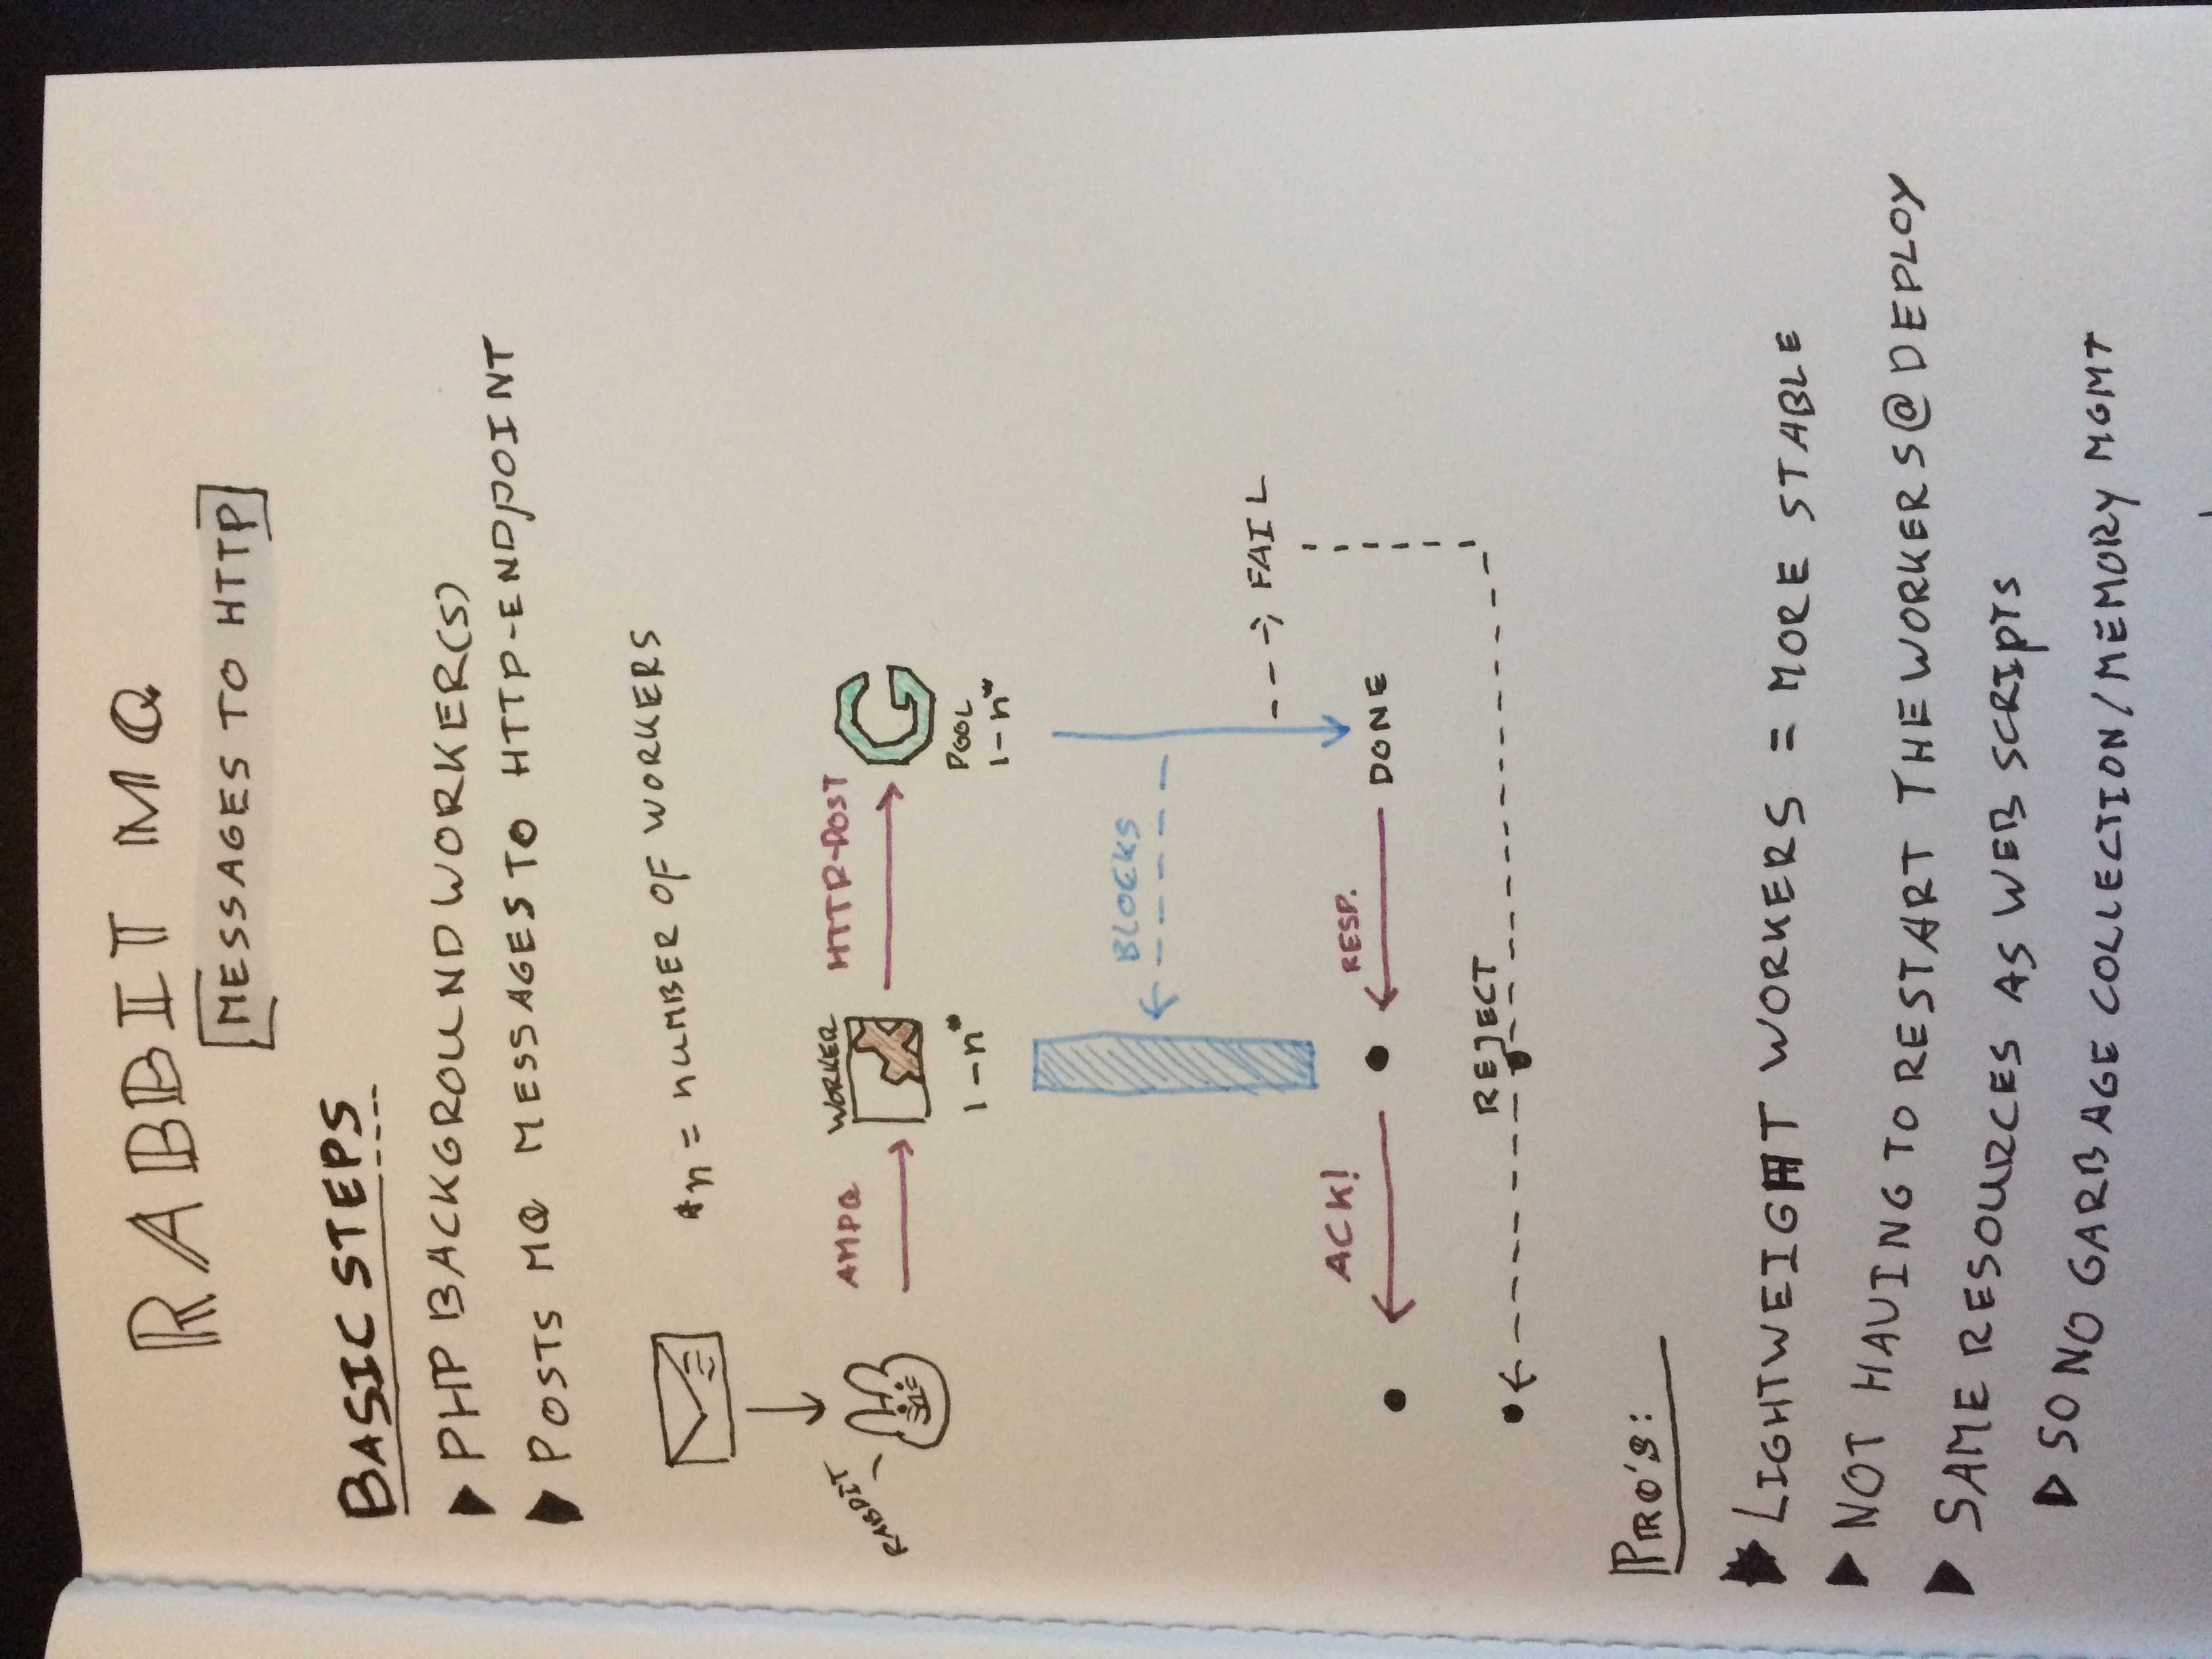 RABBIT MQ
[MESSAGES TO HTTP]
BASIC STEPS
PHP BACKGROUND WORKER(S)
POSTS MQ MESSAGES TO HTTP-ENDPOINT
*n = NUMBER OF WORKERS
RABBIT
AMPQ
WORKER
HTTP-POST
G
1-n*
POOL
1-n*
BLOCKS
FAIL
ACK!
RESP.
DONE
REJECT
PRO'S:
LIGHTWEIGHT WORKERS = MORE STABLE
NOT HAVING TO RESTART THE WORKERS @ DEPLOY
SAME RESOURCES AS WEB SCRIPTS
SO NO GARBAGE COLLECTION/MEMORY MGMT